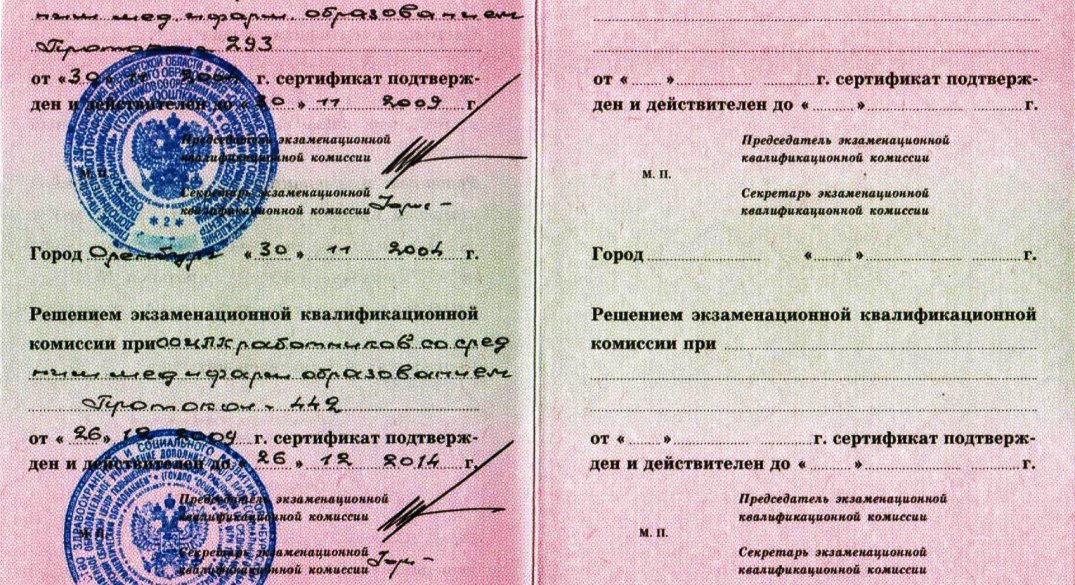 ним мед и фарм образованием
Протокол 293
от «30» 11 г. сертификат подтверж-
ден и действителен до «30» 11 2009 г.
Председатель экзаменационной
квалификационной комиссии
М. П.
Секретарь экзаменационной
квалификационной комиссии
* 2 *
Город Оренбург «30» 11 2004 г.
Решением экзаменационной квалификационной
комиссии при ООЦПК работников со сред
ним мед и фарм образованием
Протокол - 442
от «26» 12 2009 г. сертификат подтверж-
ден и действителен до «26» 12 2014 г.
Председатель экзаменационной
квалификационной комиссии
М. П.
Секретарь экзаменационной
квалификационной комиссии
от « » г. сертификат подтверж-
ден и действителен до « » г.
Председатель экзаменационной
квалификационной комиссии
М. П.
Секретарь экзаменационной
квалификационной комиссии
Город « » г.
Решением экзаменационной квалификационной
комиссии при
от « » г. сертификат подтверж-
ден и действителен до « » г.
Председатель экзаменационной
квалификационной комиссии
М. П.
Секретарь экзаменационной
квалификационной комиссии